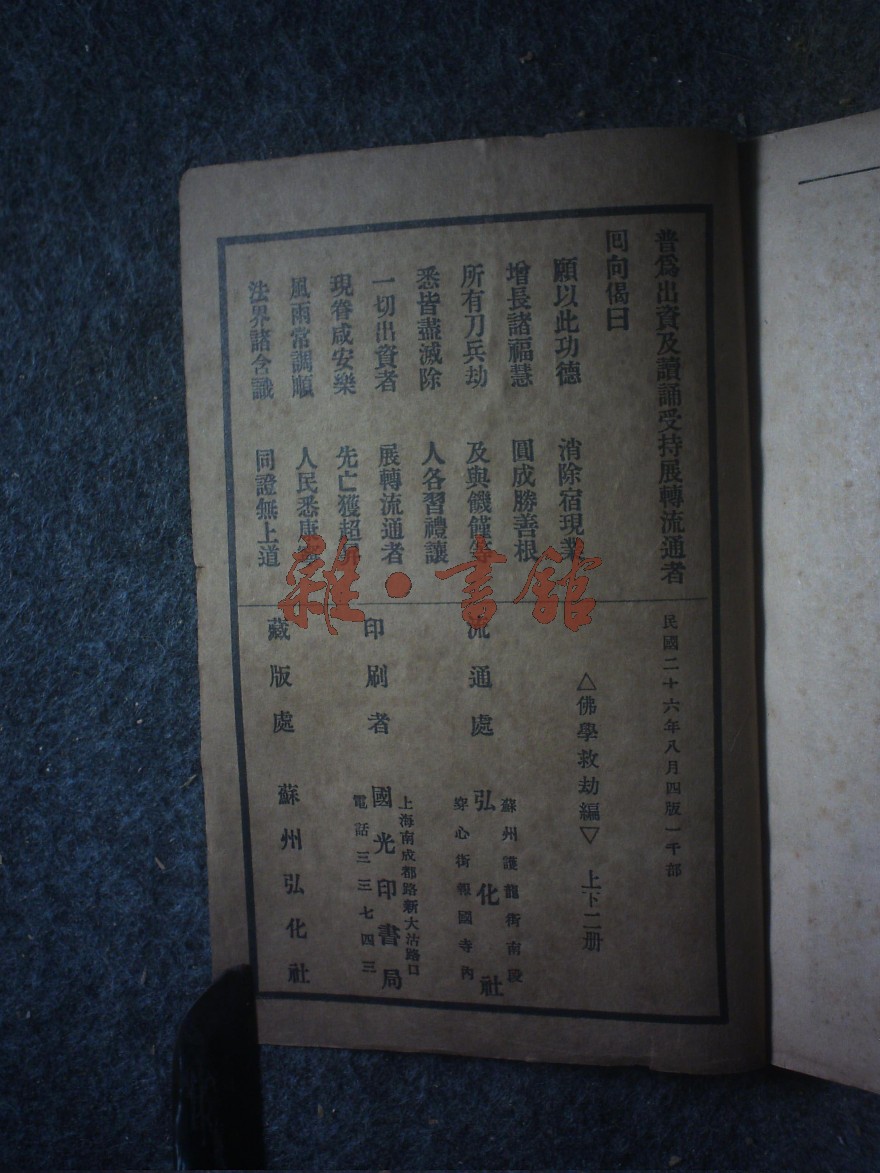 普為出資及讀誦受持展轉流通者
囘向偈曰
願以此功德 消除宿現業
增長諸福慧 圓成勝善根
所有刀兵劫 及與饑饉等
悉皆盡滅除 人各習禮讓
一切出資者 展轉流通者
現眷咸安樂 先亡獲超昇
風雨常調順 人民悉康
法界諸含識 同證無上道
民國二十六年八月四版一千部
△佛學救劫編▽ 上下二册
流通處
蘇州護龍街南段
弘化社
穿心街報國寺內
印刷者
上海南成都路新大沽路口
國光印書局
電話三三七四三
藏版處 蘇州弘化社
雜·書館